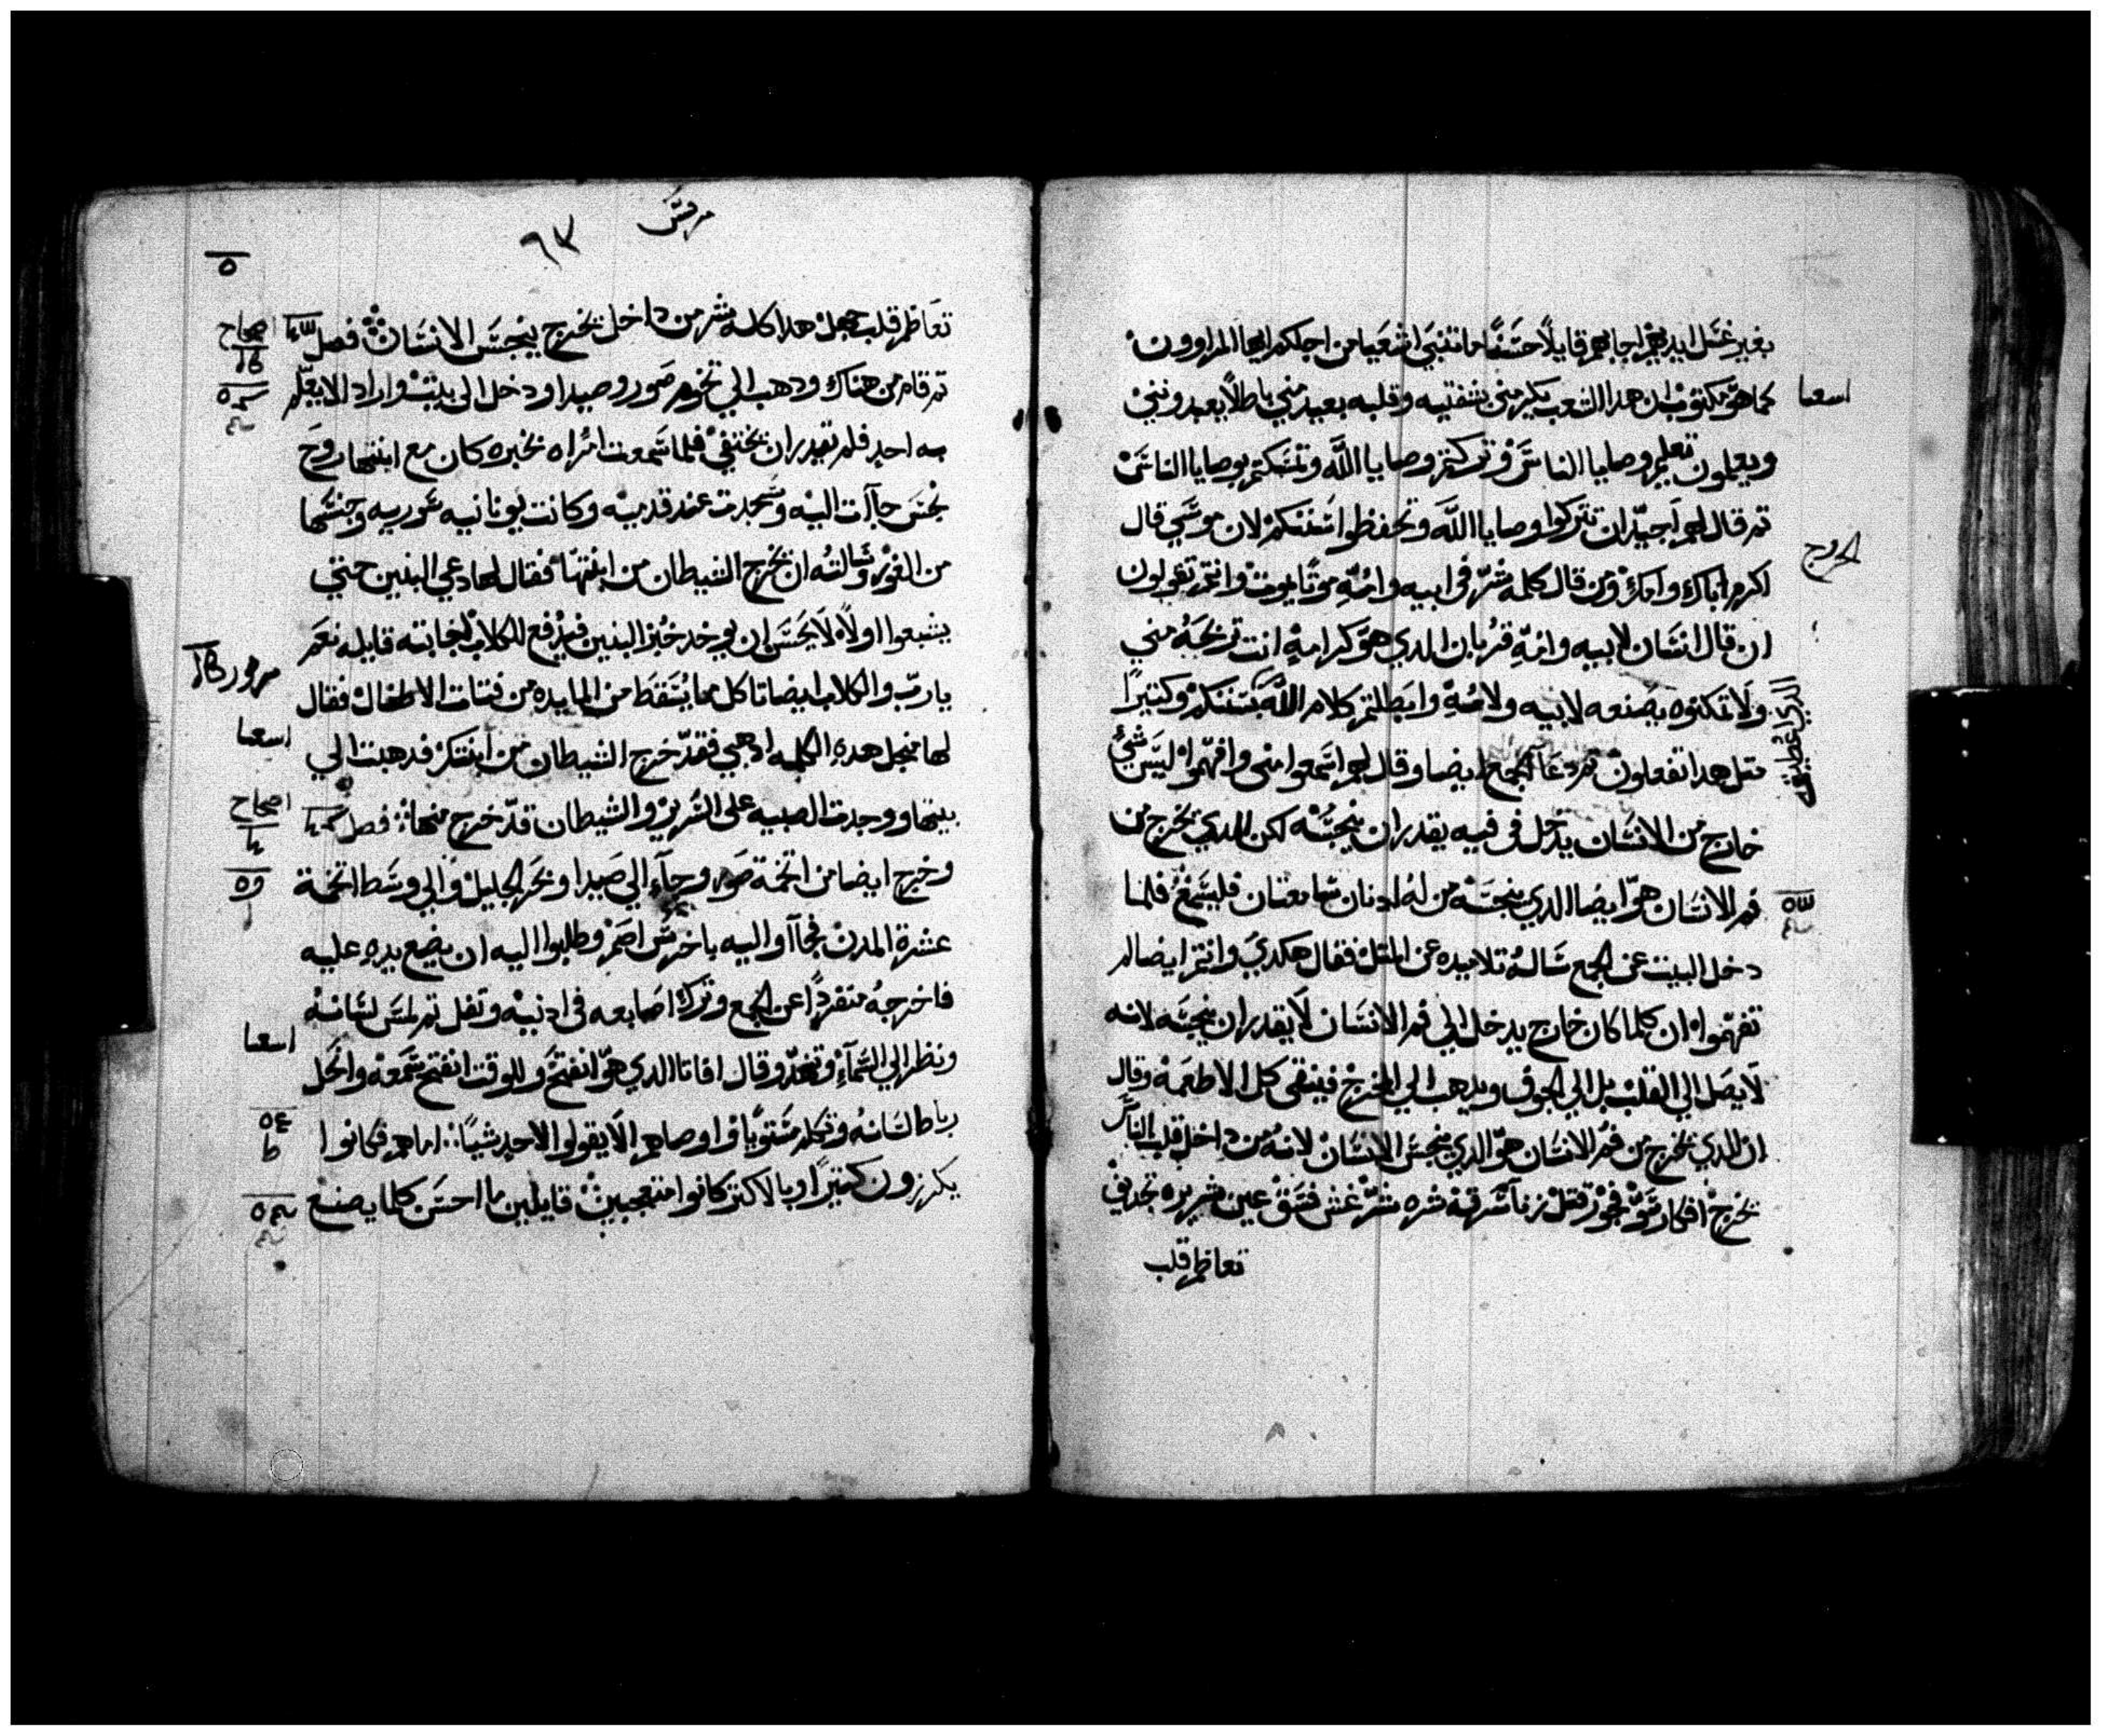 بغير غسل ايديهم اجابهم قايلاً حسنًا ما تنبي اشعيا من اجلكم ايها المراوون
كما هو مكتوب ان هدا الشعب يكرمني بشفتيه وقلبه بعيد مني باطلاً يعبدونني
اسعيا
ويعلمون تعليم وصايا الناس وتركتم وصايا الله وتمسكتم بوصايا الناس
تم قال لهم اجيد ان تتركوا وصايا الله وتحفظوا سننكم لان موسي قال
الخروج
اكرم اباك وامك ومن قال كلمه شر في ابيه وامه موتًا يموت وانتم تقولون
ان قال انسان لابيه وامه قربان الدي هو كرامة انت تربحه مني
ولا تمكنوه يصنعه لابيه ولامه وابطلتم كلام الله بسننكم وكتيرًا
الدي اعطيتموه
متل هدا تفعلون تم دعا الجمع ايضا وقال لهم اسمعوا مني وافهموا ليس شيء
خارج من الانسان يدخل في فيه يقدر ان ينجسه لكن الدي يخرج من
فم الانسان هو ايضا الدي ينجسه من له ادنان سامعتان فليسمع فلما
دخل البيت عن الجمع ساله تلاميده عن المتل فقال هكدي وانتم ايضا لم
تفهموا ان كلما كان خارج يدخل الي فم الانسان لا يقدر ان ينجسه لانه
لا يصل الي القلب بل الي الجوف ويدهب الي المخرج فينقي كل الاطعمه وقال
ان الدي يخرج من فم الانسان هو الدي ينجس الانسان لانه من داخل قلب الناس
يخرج افكار سو فجور قتل زنا سرقه شره شر غش فسق عين شريره تجديف
تعاظم قلب
مرقس
٦٣
تعاظم قلب جهل هدا كله شر من داخل يخرج ينجس الانسان فصل
اصحاح
تم قام من هناك ودهب الي تخوم صور وصيدا ودخل الي بيت واراد الا يعلم
به احد فلم يقدر ان يختفي فلما سمعت امراه بخبره كان مع ابنتها روح
نجس جاات اليه وسجدت عند قدميه وكانت يونانيه سوريه وجنسها
من الفور وسالته ان يخرج الشيطان من ابنتها فقال لها دعي البنين حتي
يشبعوا اولاً لا يحسن ان يوخد خبز البنين فيدفع للكلاب فجابته قايله نعم
مزمور
يا رب والكلاب ايضا تاكل مما يسقط من المايده من فتات الاطفال فقال
اسعيا
لها منجل هده الكلمه ادهبي فقد خرج الشيطان من ابنتك فدهبت الي
بيتها ووجدت الصبيه علي السرير والشيطان قد خرج منها فصل
اصحاح
وخرج ايضا من اتخمة صور وجاء الي صيدا وبحر الجليل والي وسط اتخمة
عشرة المدن فجااوا اليه باخرس اصم وطلبوا اليه ان يضع يده عليه
فاخرجه متفردًا عن الجمع وترك اصابعه في ادنيه وتفل تم لمس لسانه
اسعيا
ونظر الي السماء وتنهد وقال افاتا الدي هو انفتح وللوقت انفتح سمعه وانحل
رباط لسانه وتكلم مستويًا واوصاهم الا يقولوا لاحد شيا اما هم فكانوا
يكرزون كتيرًا وبالاكتر كانوا متعجبين قايلين ما احسن كلما يصنع